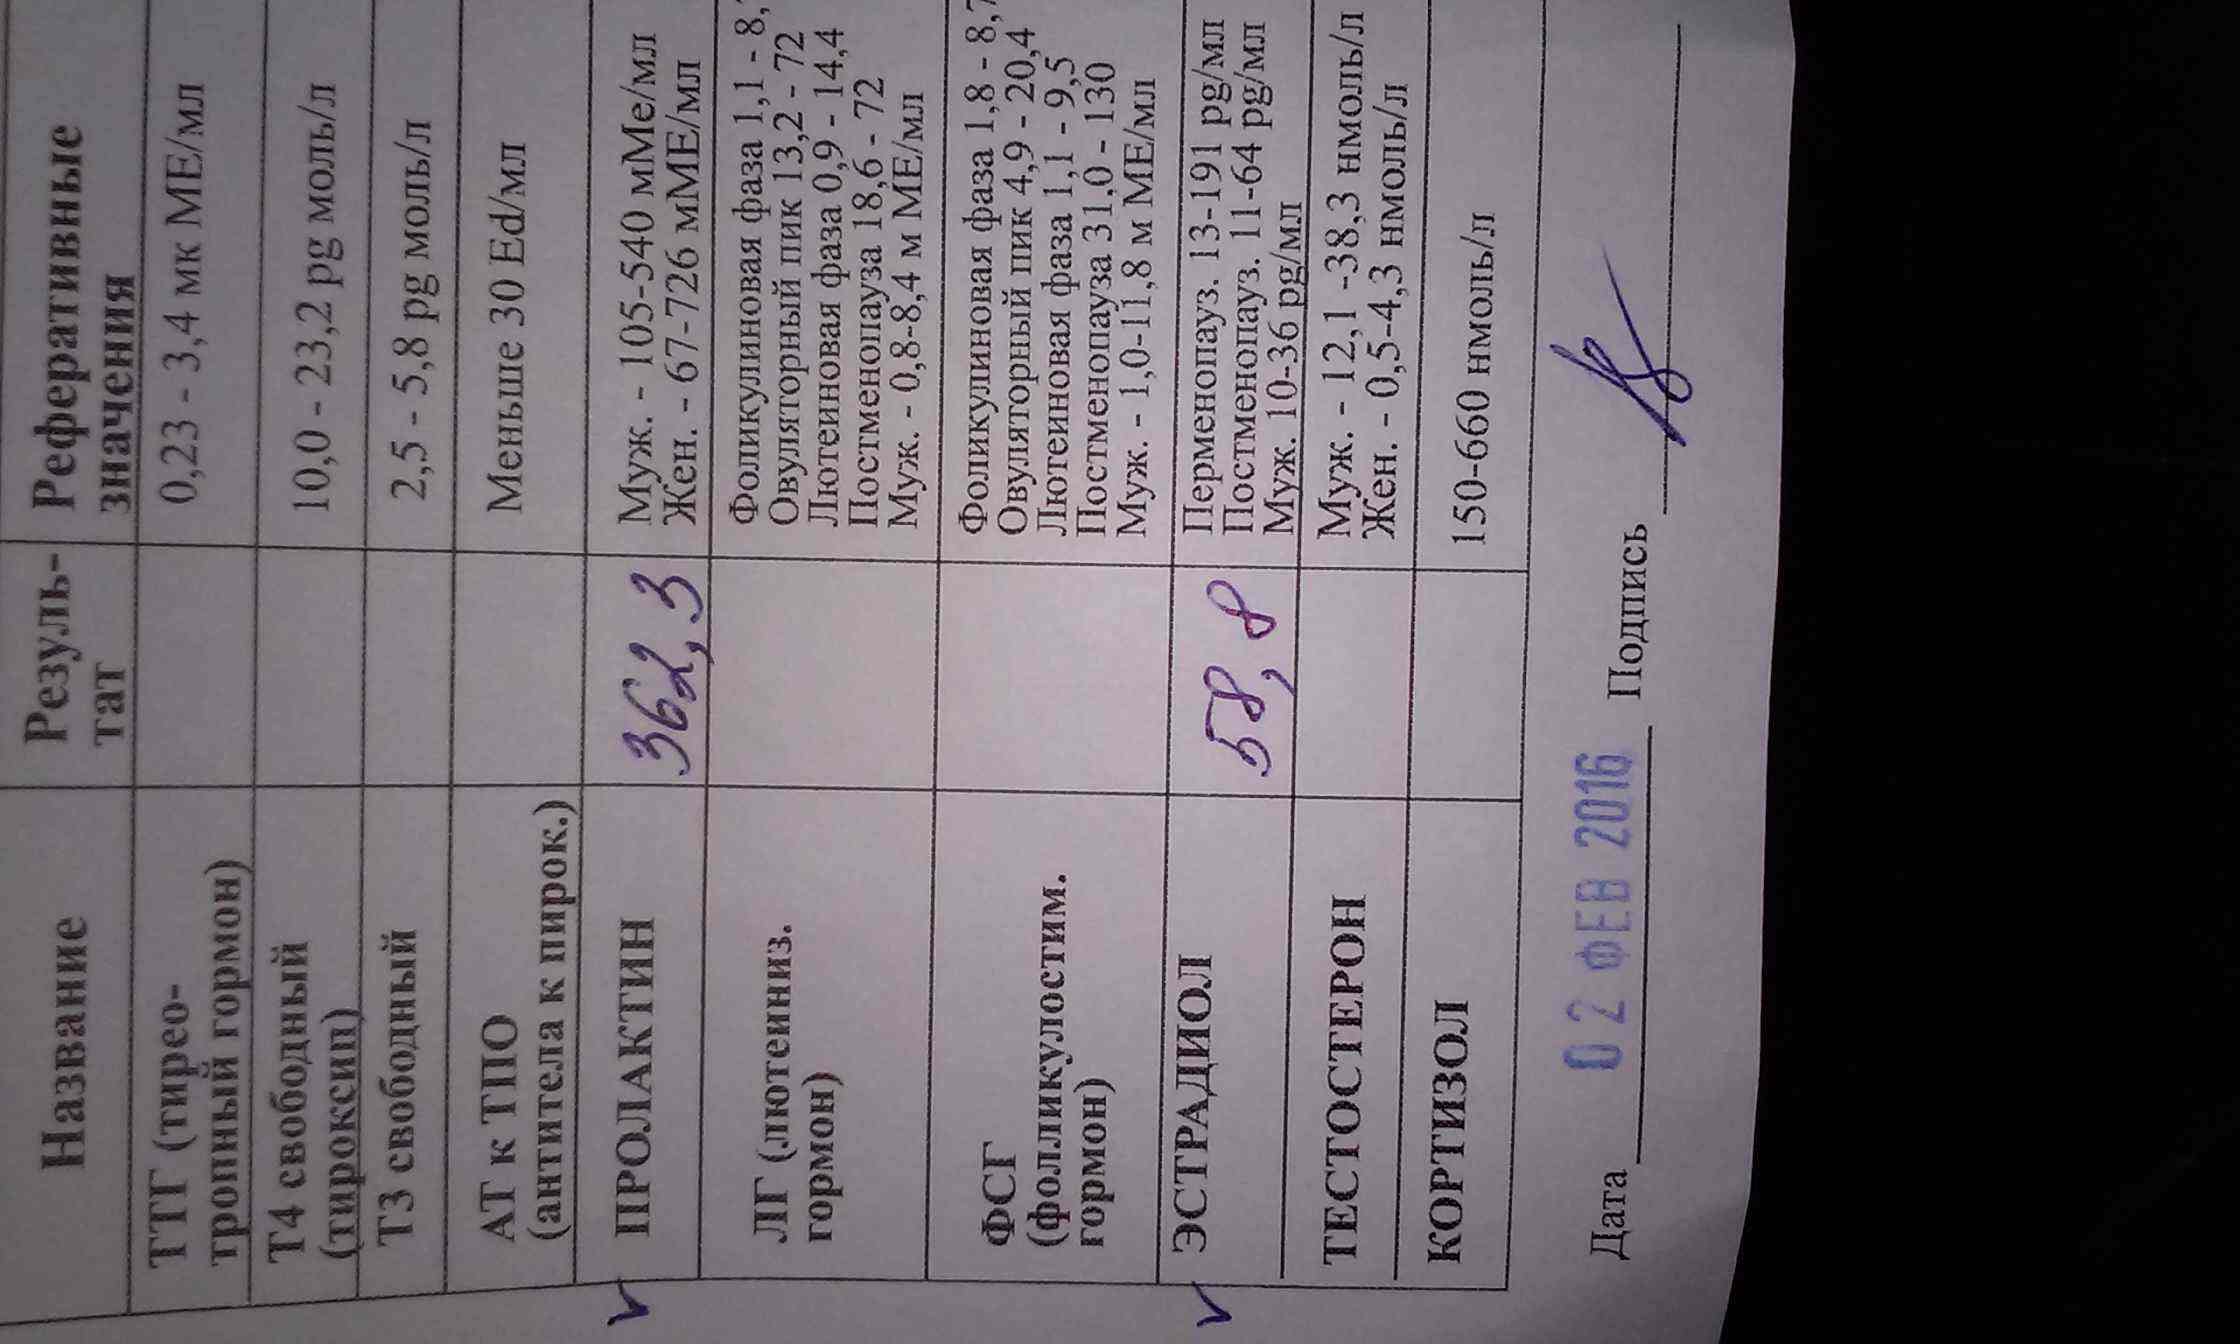 Название
Резуль-
тат
Реферативные
значения
ТТГ (тирео-
тропный гормон)
0,23 - 3,4 мк МЕ/мл
Т4 свободный
(тироксин)
10,0 - 23,2 pg моль/л
Т3 свободный
2,5 - 5,8 pg моль/л
АТ к ТПО
(антитела к пирок.)
Меньше 30 Ed/мл
V
ПРОЛАКТИН
362,3
Муж. - 105-540 мМе/мл
Жен. - 67-726 мМЕ/мл
ЛГ (лютеиниз.
гормон)
Фоликулиновая фаза 1,1 - 8,
Овуляторный пик 13,2 - 72
Лютеиновая фаза 0,9 - 14,4
Постменопауза 18,6 - 72
Муж. - 0,8-8,4 м МЕ/мл
ФСГ
(фолликулостим.
гормон)
Фоликулиновая фаза 1,8 - 8,7
Овуляторный пик 4,9 - 20,4
Лютеиновая фаза 1,1 - 9,5
Постменопауза 31,0 - 130
Муж. - 1,0-11,8 м МЕ/мл
V
ЭСТРАДИОЛ
58,8
Перменопауз. 13-191 pg/мл
Постменопауз. 11-64 pg/мл
Муж. 10-36 pg/мл
ТЕСТОСТЕРОН
Муж. - 12,1 -38,3 нмоль/л
Жен. - 0,5-4,3 нмоль/л
КОРТИЗОЛ
150-660 нмоль/л
Дата 02 ФЕВ 2016 Подпись